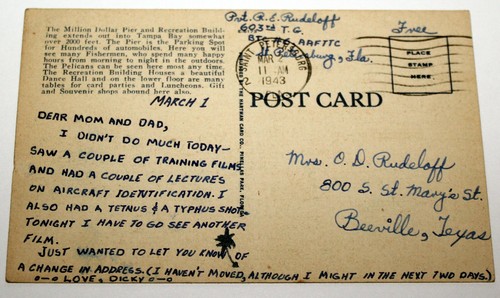 The Million Dollar Pier and Recreation Build-
ing extends out into Tampa Bay somewhat
over 2000 feet. The Pier is the Parking Spot
for Hundreds of automobiles. Here you will
see many Fishermen, who spend many happy
hours from morning to night in the outdoors.
The Pelicans can be seen here most any time.
The Recreation Building Houses a beautiful
Dance Hall and on the lower floor are many
tables for card parties and Luncheons. Gift
and Souvenir shops abound here also.
MARCH 1
DEAR MOM AND DAD,
I DIDN'T DO MUCH TODAY-
SAW A COUPLE OF TRAINING FILMS
AND HAD A COUPLE OF LECTURES
ON AIRCRAFT IDENTIFICATION. I
ALSO HAD A TETNUS & A TYPHUS SHOT
TONIGHT I HAVE TO GO SEE ANOTHER
FILM.
JUST WANTED TO LET YOU KNOW OF
A CHANGE IN ADDRESS. (I HAVEN'T MOVED, ALTHOUGH I MIGHT IN THE NEXT TWO DAYS.)
LOVE, DICKY
Pvt. R. E. Rudeloff
T.G.
AAFTTC
St. Petersburg, Fla.
Free
SAINT PETERSBURG
MAR
11 AM
1943
PLACE
STAMP
HERE
POST CARD
Mrs. O. D. Rudeloff
800 S. St. Mary's St.
Beeville, Texas